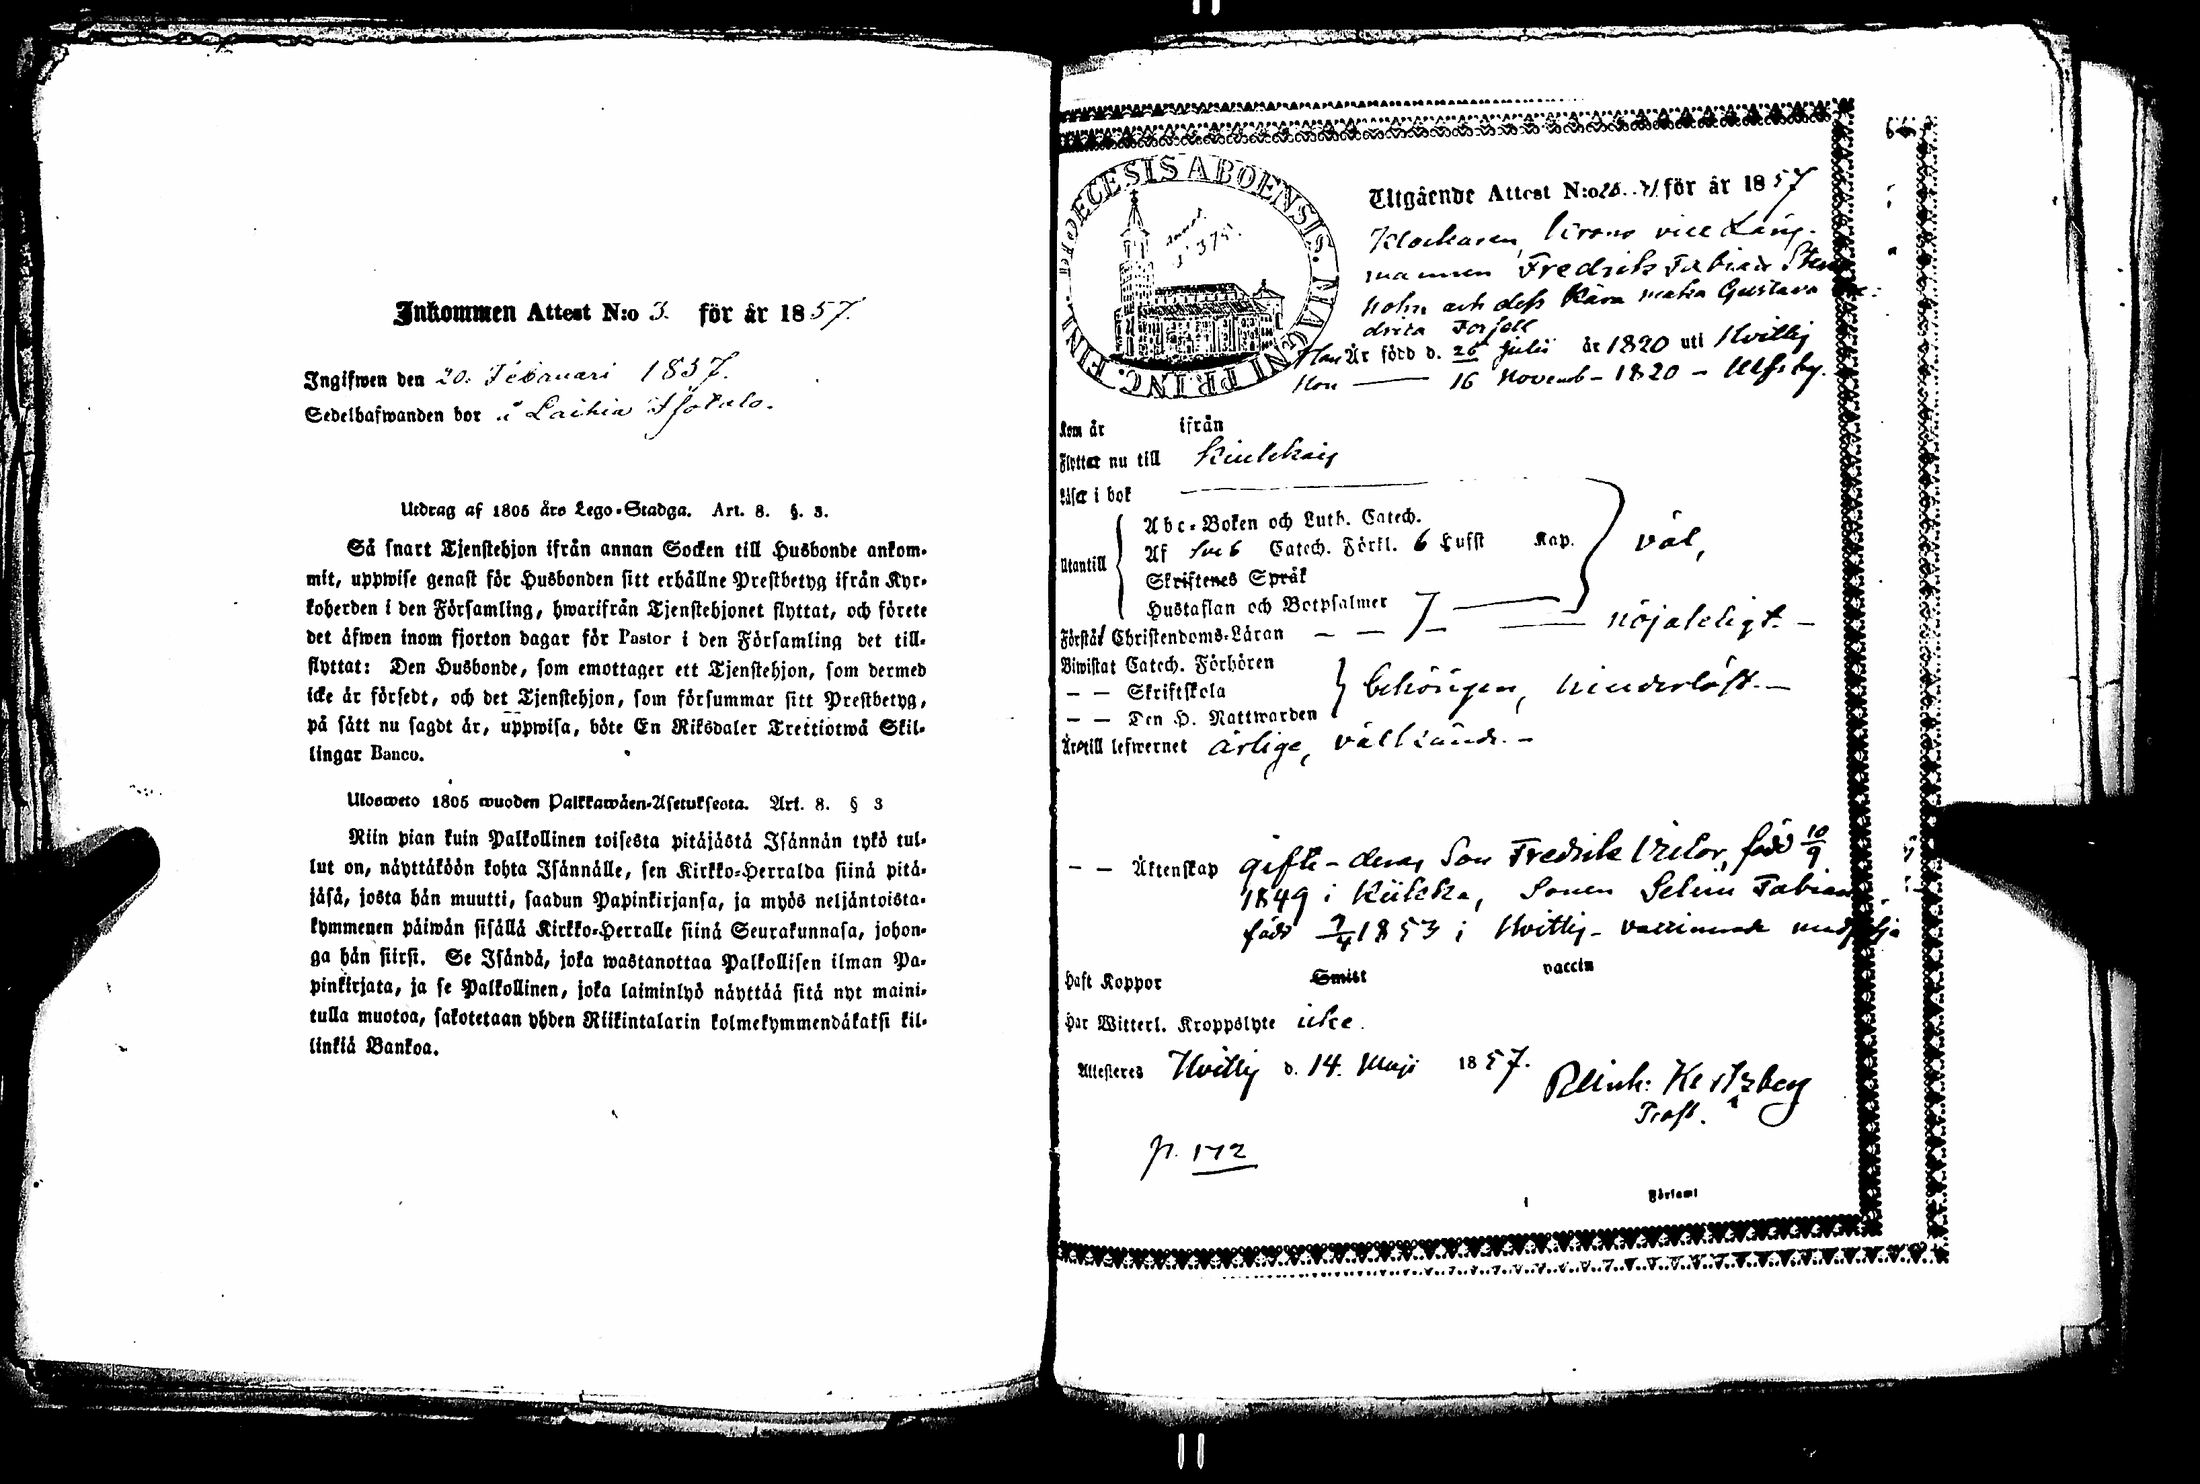 Inkommen Attest N:o 3. för år 1857.
Ingifwen den 20. Februari 1857.
Sedelhafwanden bor i Laihia Isotalo.
Utdrag af 1805 års Lego-Stadga. Art. 8. §. 3.
Så snart Tjenstehjon ifrån annan Socken till Husbonde ankom-
mit, uppwise genast för Husbonden sitt erhållne Prestbetyg ifrån Kyr-
koherden i den Församling, hwarifrån Tjenstehjonet flyttat, och förete
det äfwen inom fjorton dagar för Pastor i den Församling det till-
flyttat: Den Husbonde, som emottager ett Tjenstehjon, som dermed
icke är försedt, och det Tjenstehjon, som försummar sitt Prestbetyg,
på sätt nu sagdt är, uppwisa, böte En Riksdaler Trettiotwå Skil-
lingar Banco.
Ulosweto 1805 wuoden Palkkawäen-Asetuksesta. Art. 8. § 3
Niin pian kuin Palkollinen toisesta pitäjästä Isännän tykö tul-
lut on, näyttäköön kohta Isännälle, sen Kirkko-Herralda siinä pitä-
jäsä, josta hän muutti, saadun Papinkirjansa, ja myös neljäntoista-
kymmenen päiwän sisällä Kirkko-Herralle siinä Seurakunnasa, johon-
ga hän siirsi. Se Isändä, joka wastanottaa Palkollisen ilman Pa-
pinkirjata, ja se Palkollinen, joka laiminlyö näyttää sitä nyt maini-
tulla muotoa, sakotetaan yhden Riikintalarin kolmekymmendäkaksi kil-
linkiä Bankoa.
DIOECESIS ABOENSIS. MAGNI PRINC. FINL.
Utgående Attest N:o 20. 21 för år 1857
Klockaren, Krono vice Läns-
mannen Fredrik Fabian Sten
holm och dess Kära maka Gustava
drika Forsell
Han Är född d. 26 Julii år 1820 uti Hvittis
Hon — 16 Novemb - 1820 - Ulfsby.
Kom år ifrån
Flyttar nu till Kiulekais
Läser i bok
Utantill
Abc-Boken och Luth. Catech.
Af Sveb Catech. Förkl. 6 Lufft Kap. väl,
Skriftenes Språk
Hustaflan och Botpsalmer
Förstår Christendoms-Läran — — nöjaktigt. —
Biwistat Catech. Förhören
— — Skriftskola behörigen, hinderlöst. —
— — Den H. Nattwarden
Äro till lefwernet ärlige, välkände. —
— — Äktenskap gifte - deras Son Fredrik Victor, född 10/9
1849 i Kiikka, Sonen Selim Fabian
född 7/4 1853 i Hvittis - vaccinerade medfölja
Haft Koppor Smitt vaccin
Har Witterl. Kroppslyte icke.
Attesteres Hvittis d. 14. Maji 1857.
Reinh: Hertzberg
Prost.
p. 172
Församl